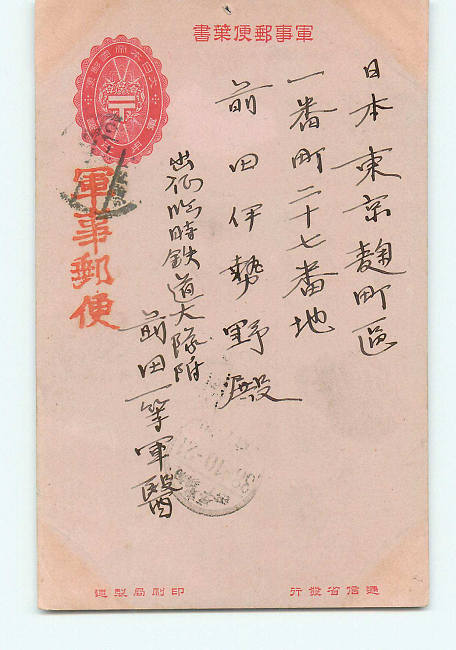 軍事郵便葉書
日本東京麹町區
一番町二十七番地
前田伊勢野殿
出征臨時鉄道大隊附
前田一等軍醫
軍事郵便
逓信省發行
印刷局製造